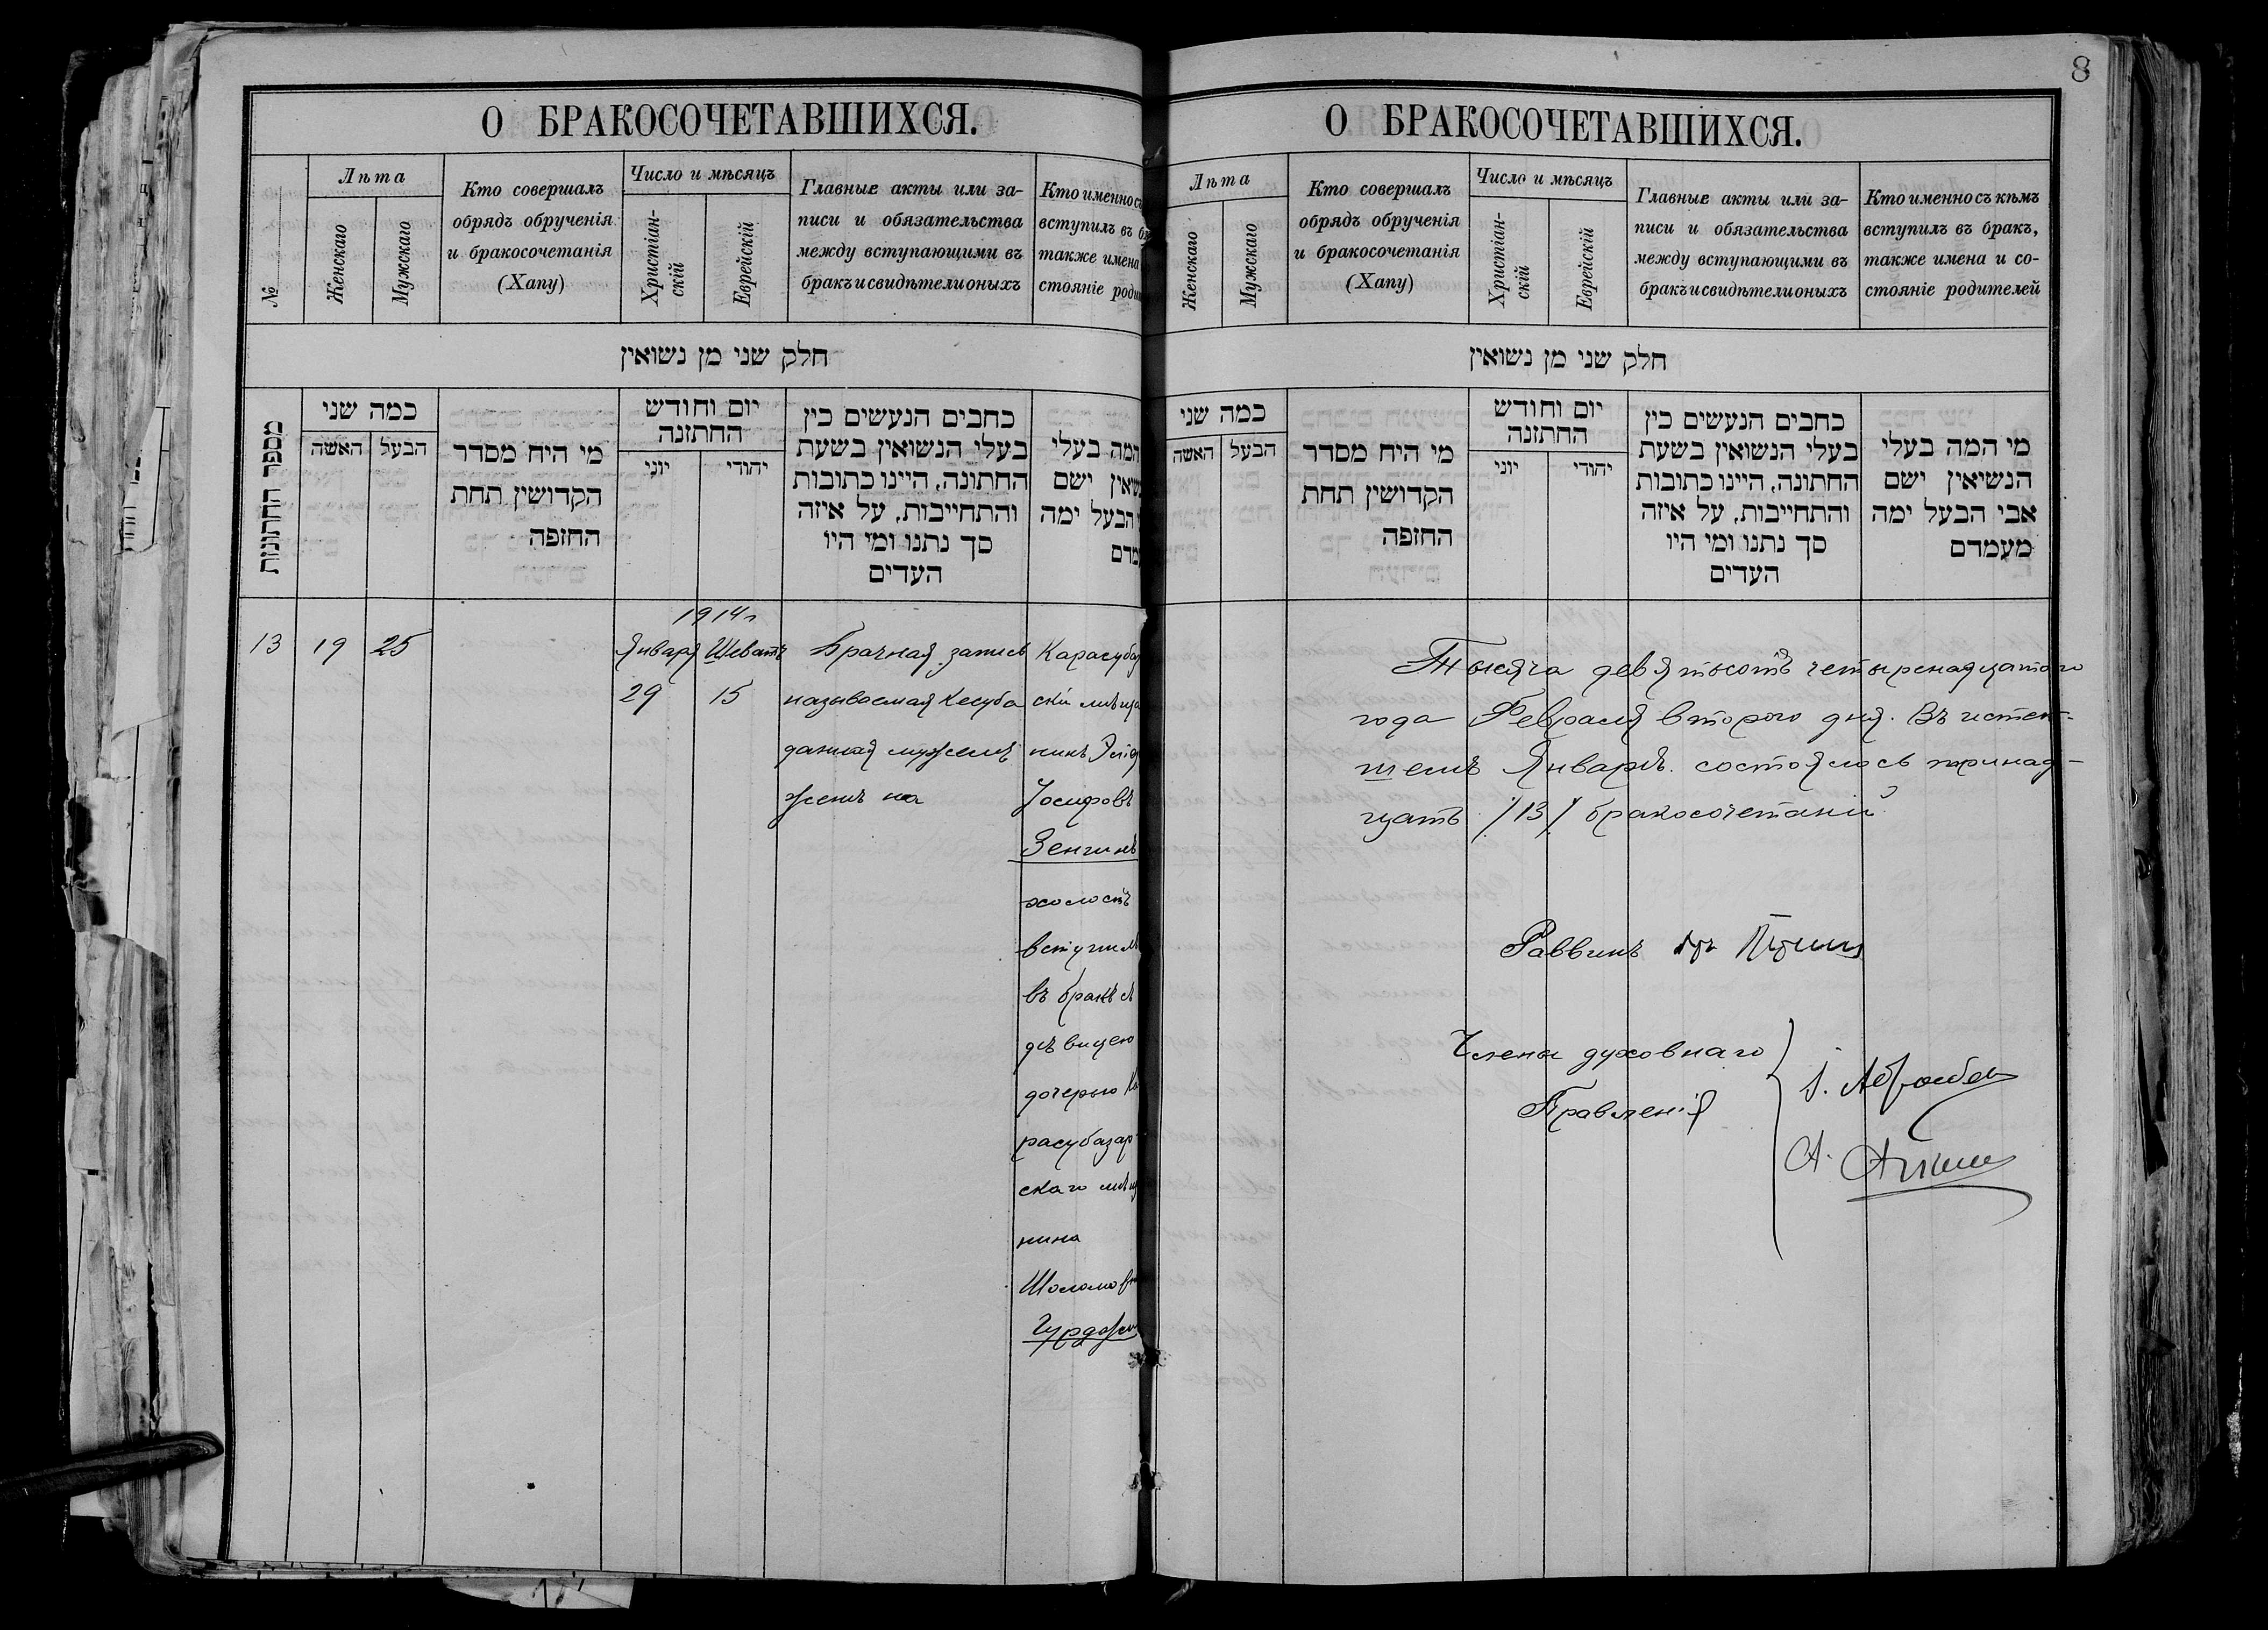 8
О БРАКОСОЧЕТАВШИХСЯ.
№
Лѣта
Женскаго
Мужскаго
Кто совершалъ
обрядъ обрученія
и бракосочетанія
(Хапу)
Число и мѣсяцъ
Христіан-
скій
Еврейскій
Главные акты или за-
писи и обязательства
между вступающими въ
бракъ и свидѣтели оныхъ
Кто именно съ
вступилъ въ
также имена
стояніе
חלק שני מן נשואין
מספר החתונות
כמה שני
האשה
הבעל
מי היח מסדר
הקדושין תחת
החזפה
יום וחודש
החתזנה
יוני
יהודי
כחבים הנעשים כין
בעלי הנשואין בשעת
החתונה, היינו כתובות
והתחייבות, על איזה
סך נתנו ומי היו
העדים
המה בעלי
ישם
הבעל ימה
1914 г
13
19
25
Января
29
Шеватъ
15
Брачная запись
называемая Кесуба
данная мужемъ
женѣ на
Карасубаз
скій мѣща
нинъ
Іосифовъ
Зенгинъ
холостъ
вступилъ
въ бракъ с
дѣвицею
дочерью Ка
расубазар-
скаго мѣщ
нина
Шолома
О БРАКОСОЧЕТАВШИХСЯ.
Лѣта
Женскаго
Мужскаго
Кто совершалъ
обрядъ обрученія
и бракосочетанія
(Хапу)
Число и мѣсяцъ
Христіан-
скій
Еврейскій
Главные акты или за-
писи и обязательства
между вступающими въ
бракъ и свидѣтели оныхъ
Кто именно съ кѣмъ
вступилъ въ бракъ,
также имена и со-
стояніе родителей
חלק שני מן נשואין
כמה שני
האשה
הבעל
מי היח מסדר
הקדושין תחת
החזפה
יום וחודש
החתזנה
יוני
יהודי
כחבים הנעשים כין
בעלי הנשואין בשעת
החתונה, היינו כתובות
והתחייבות, על איזה
סך נתנו ומי היו
העדים
מי המה בעלי
הנשיאין ישם
אבי הבעל ימה
מעמדם
Тысяча девятьсотъ четырнадцатого
года Февраля второго дня. Въ истек-
шемъ Январѣ состоялось тринад-
цать /13/ бракосочетаній
Раввинъ
Члены духовнаго
Правленія